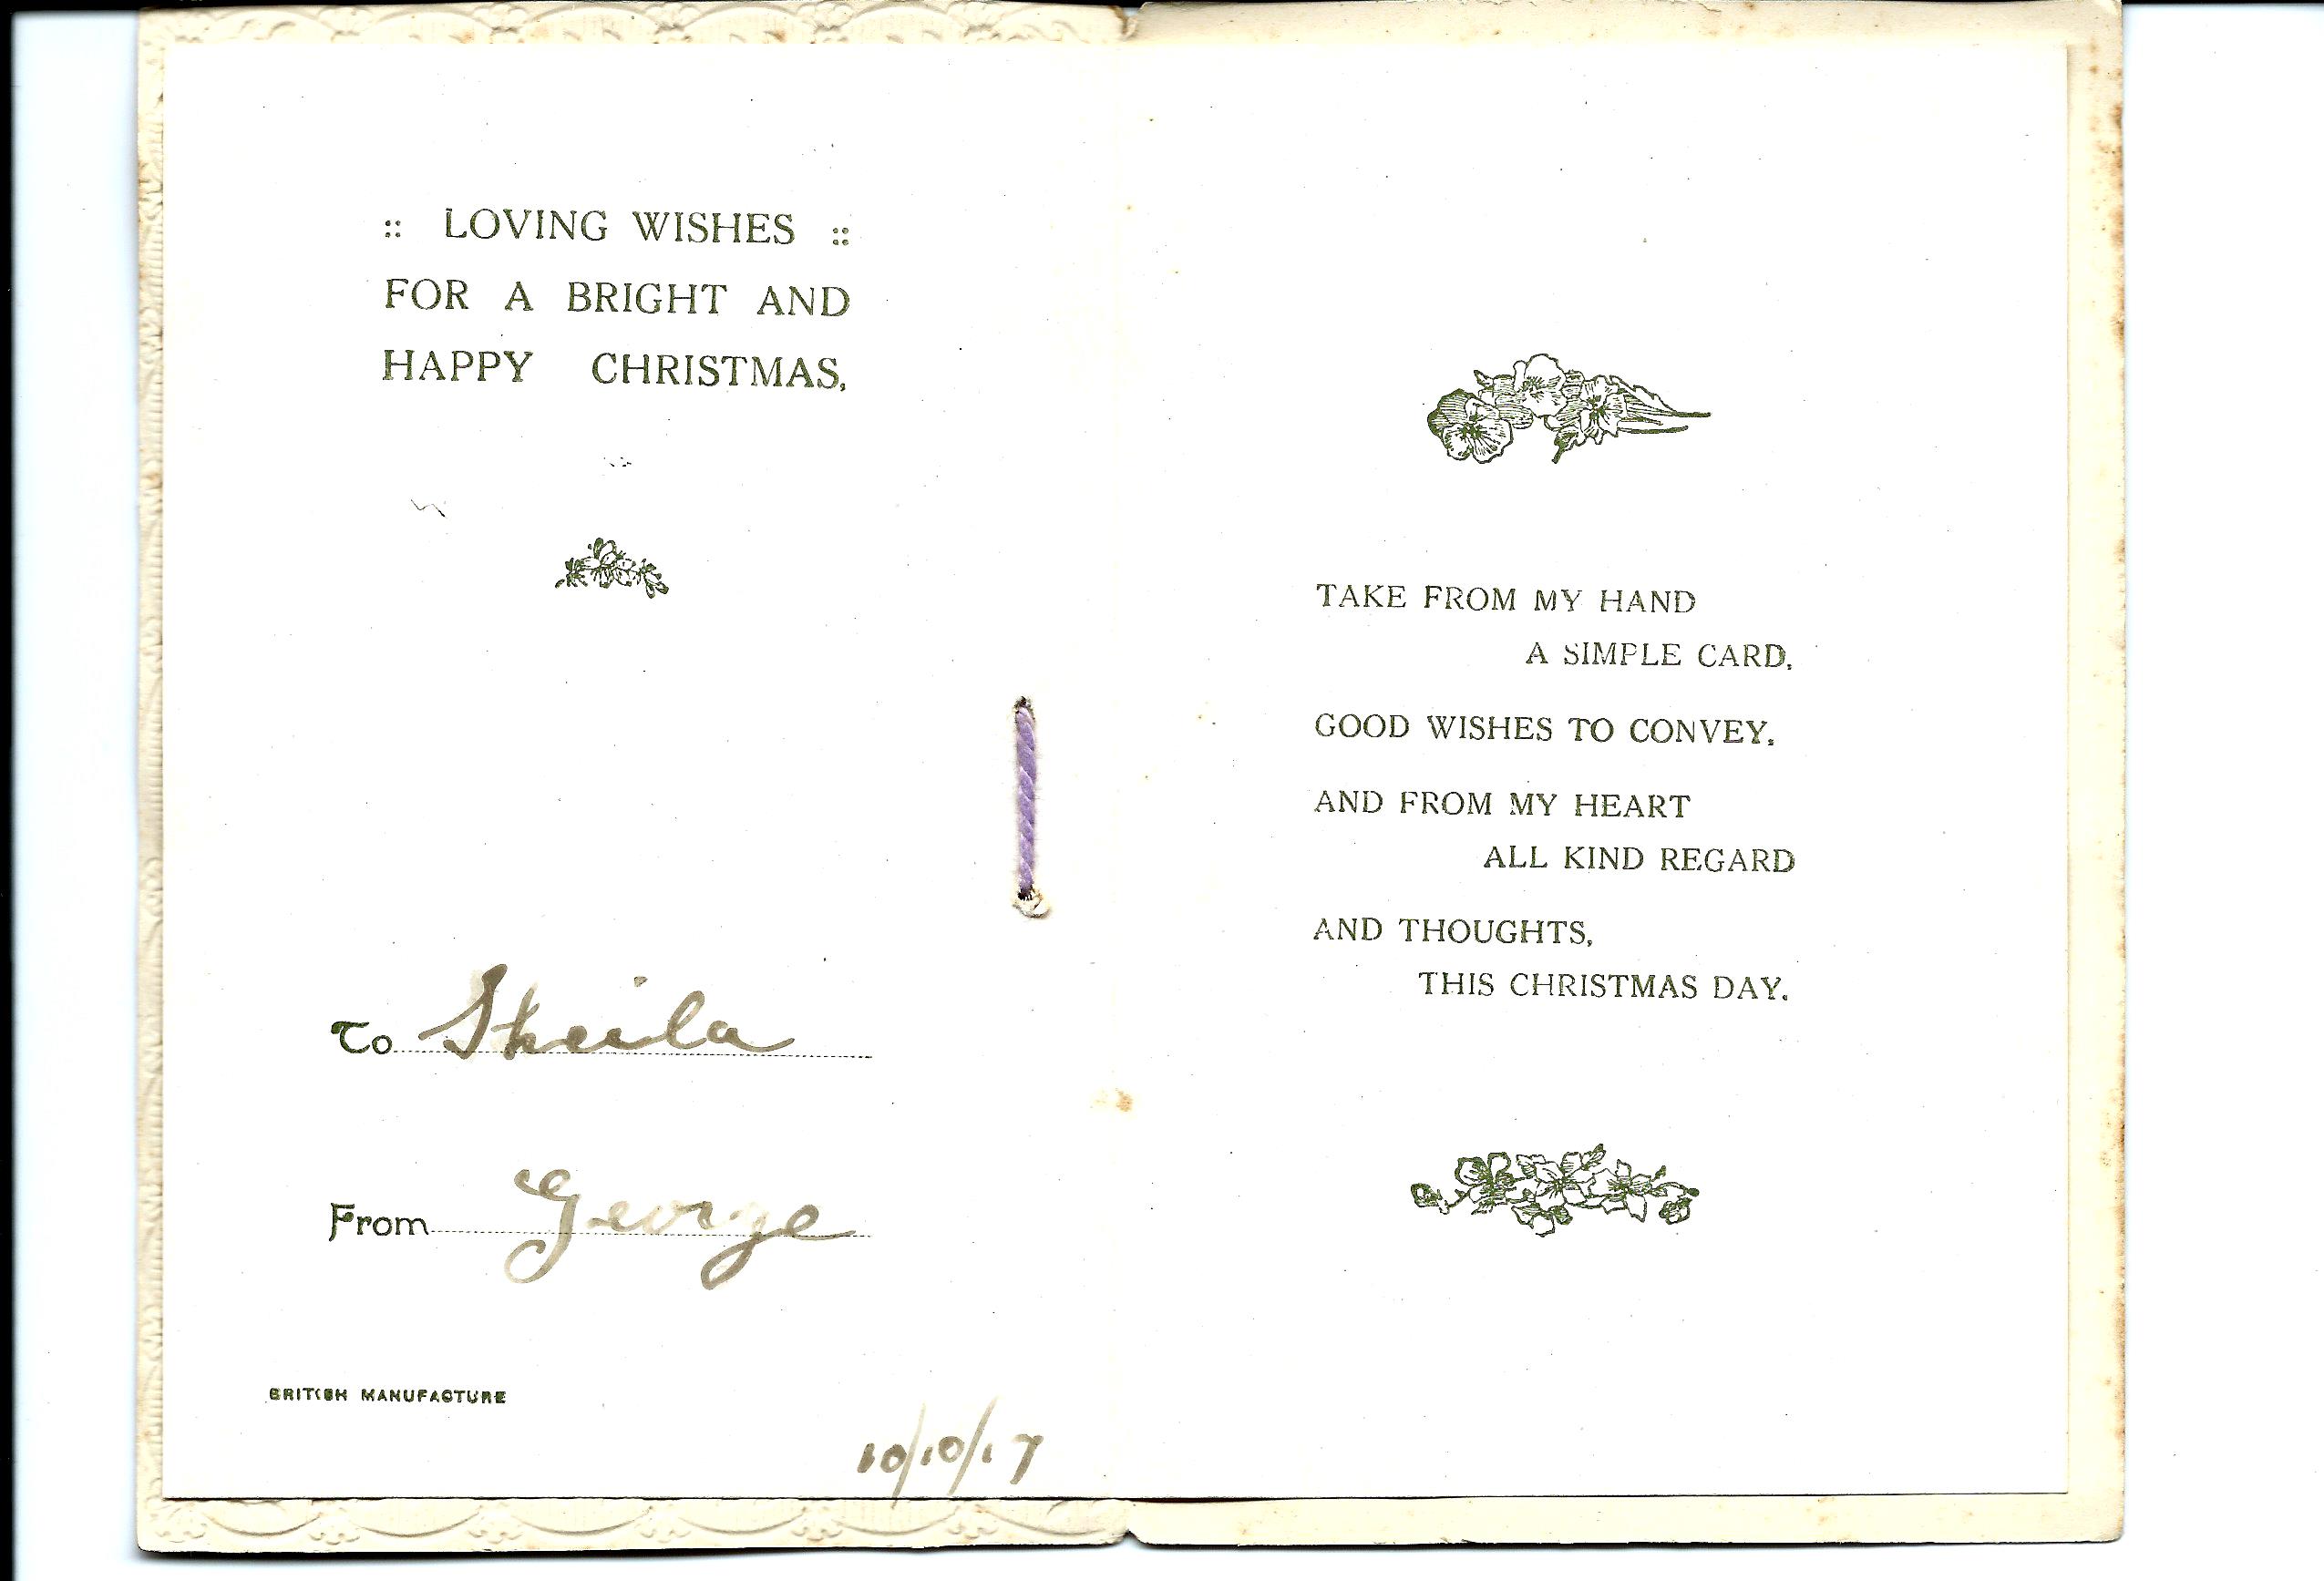 :: LOVING WISHES ::
FOR A BRIGHT AND
HAPPY CHRISTMAS,
To Sheila
From George
BRITISH MANUFACTURE
10/10/17
TAKE FROM MY HAND
A SIMPLE CARD,
GOOD WISHES TO CONVEY,
AND FROM MY HEART
ALL KIND REGARD
AND THOUGHTS,
THIS CHRISTMAS DAY.